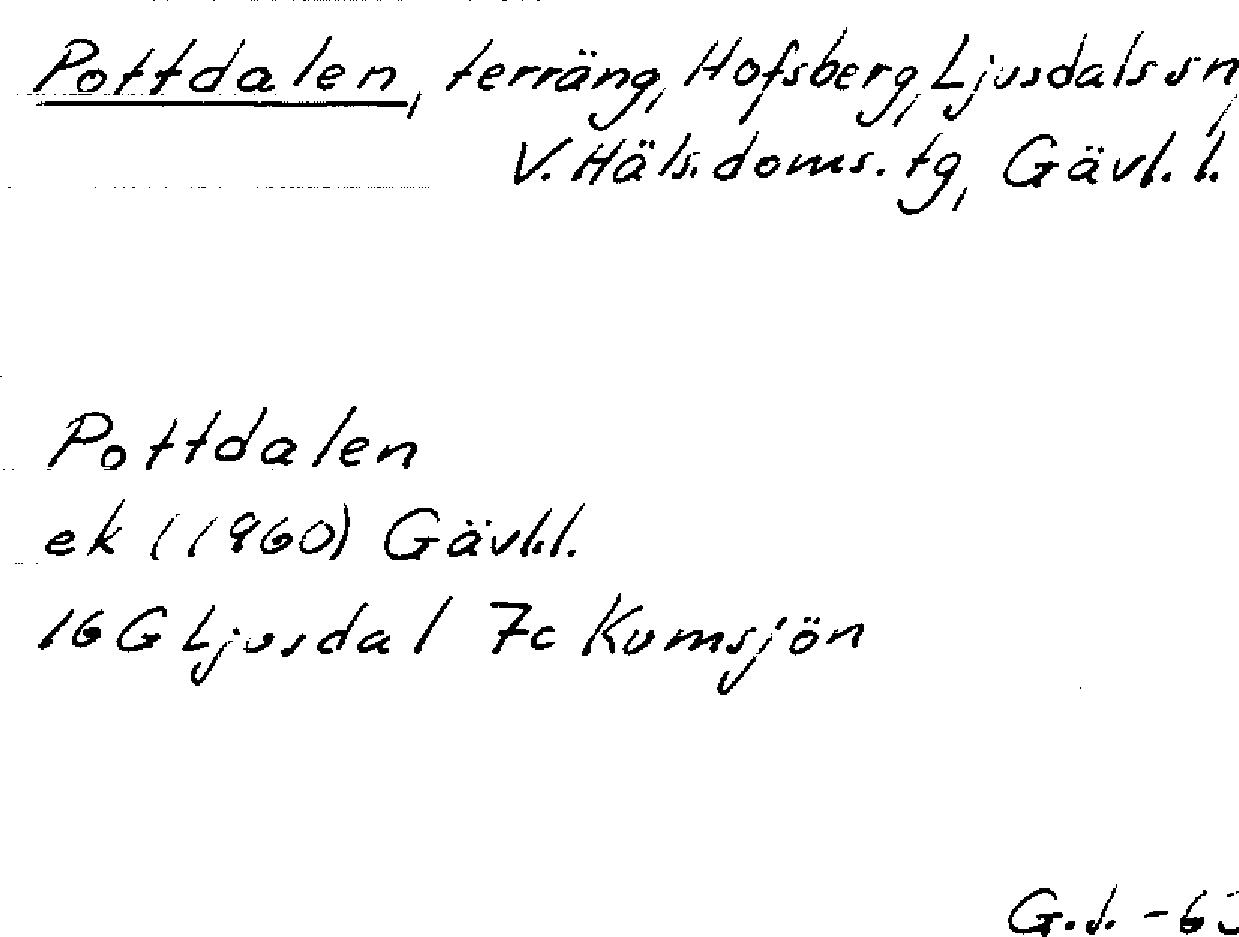 Pottdalen, terräng, Hofsberg, Ljusdals sn,
V. Häls. doms. tg, Gävl. l.
Pottdalen
ek (1960) Gävl.l.
16 G Ljusdal 7c Kumsjön